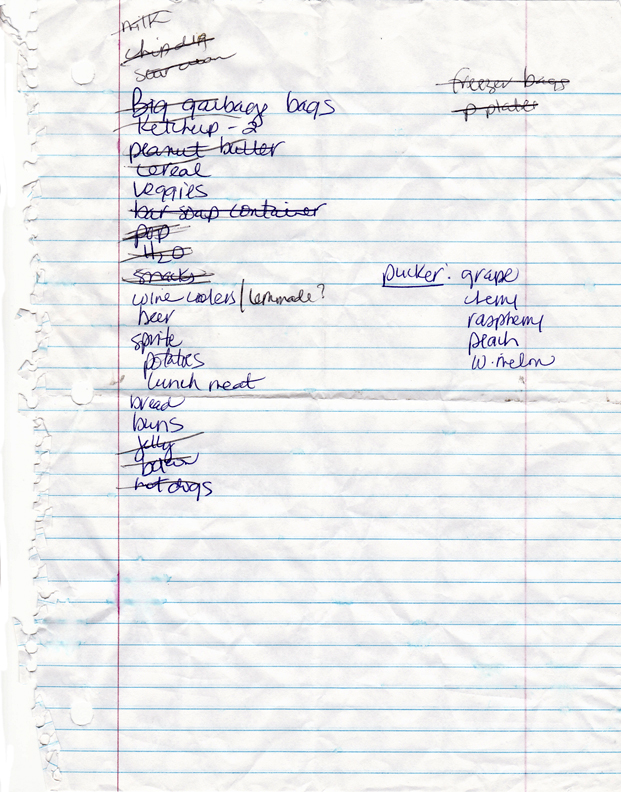 milk
chip dip
sour cream
freezer bags
p plates
Big garbage bags
Ketchup - 2
peanut butter
cereal
veggies
bar soap container
pop
H2O
snacks
wine coolers / lemonade?
beer
sprite
potatoes
lunch meat
bread
buns
jelly
hot dogs
pucker: grape
cherry
raspberry
peach
w.melon